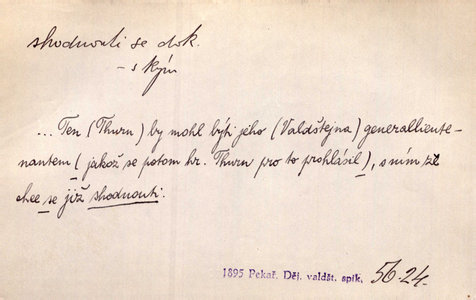 shodnouti se dok.
– s kým
... Ten (Thurn) by mohl býti jeho (Valdštejna) generallieute-
nantem (jakož se potom hr. Thurn pro to prohlásil), s ním že
chce se již shodnouti.
1895 Pekař. Děj. valdšt. spik. 56.24.